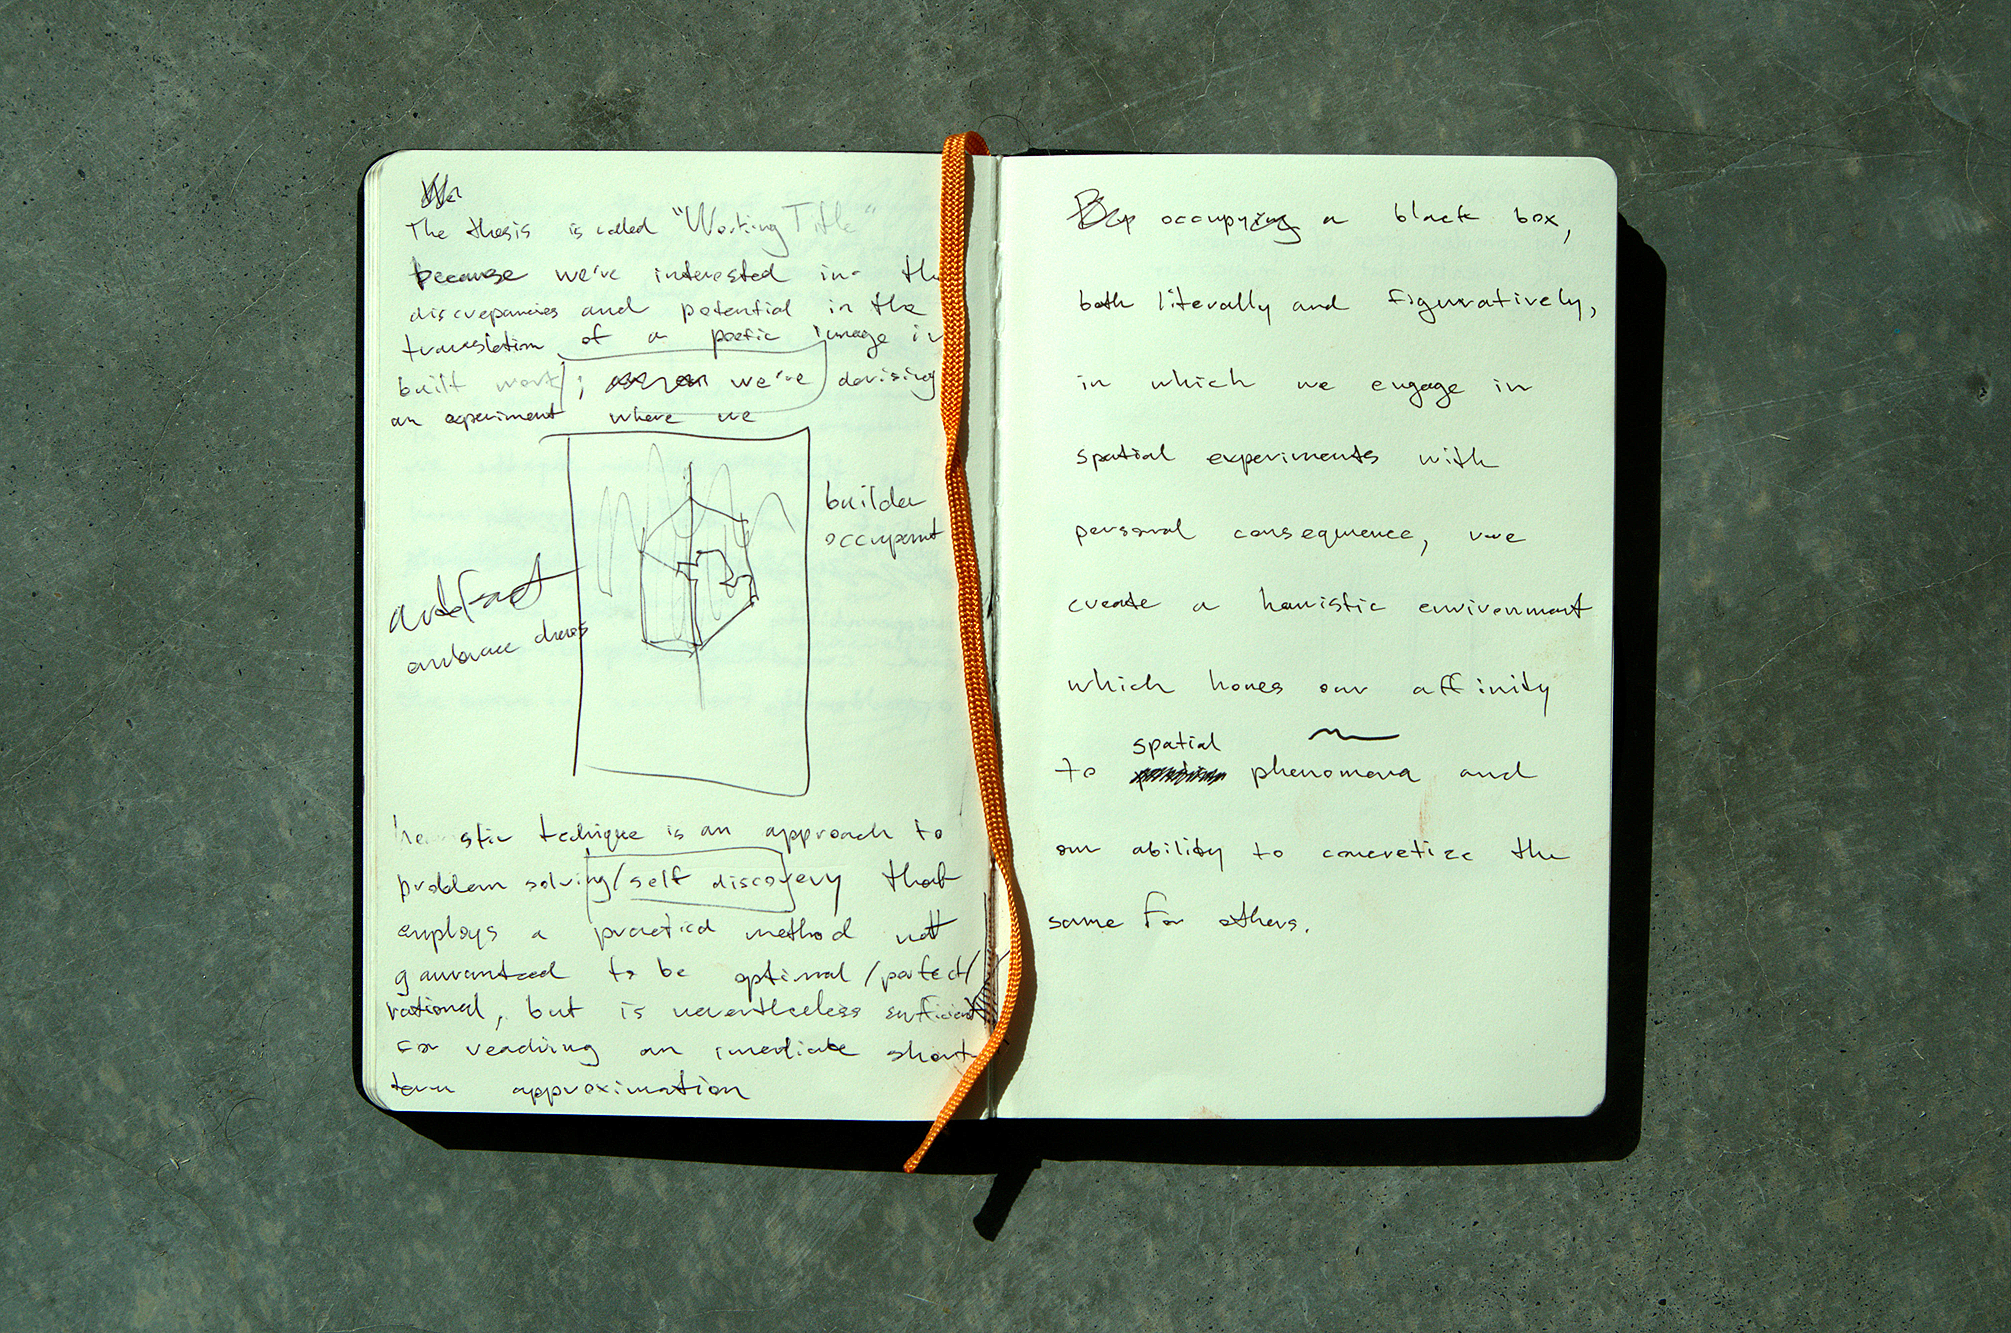 The thesis is called "Working Title"
because we're interested in the
discrepancies and potential in the
translation of a poetic image in
built work; we're devising
an experiment where we
builder
occupant
artifact
embrace
heuristic technique is an approach to
problem solving/self discovery that
employs a practical method not
gauranteed to be optimal/perfect/
rational, but is nevertheless sufficient
for reaching an imediate short
term approximation
By occupying a black box,
both literally and figuratively,
in which we engage in
spatial experiments with
personal consequence, we
create a heuristic environment
which hones our affinity
spatial
to phenomena and
our ability to concretize the
same for others.